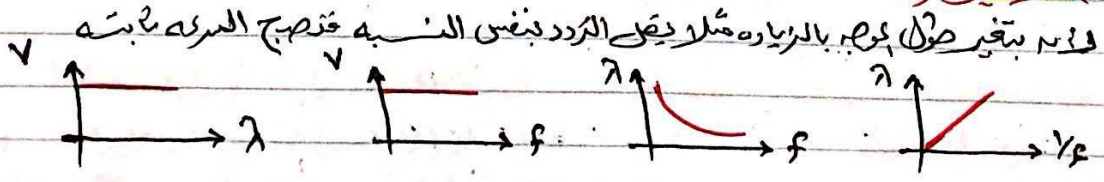 لانه بتغير طول الموجه بالزياده مثلا يقل التردد بنفس النسبه فتصبح السرعه ثابته
V λ
V f
λ f
λ 1/f